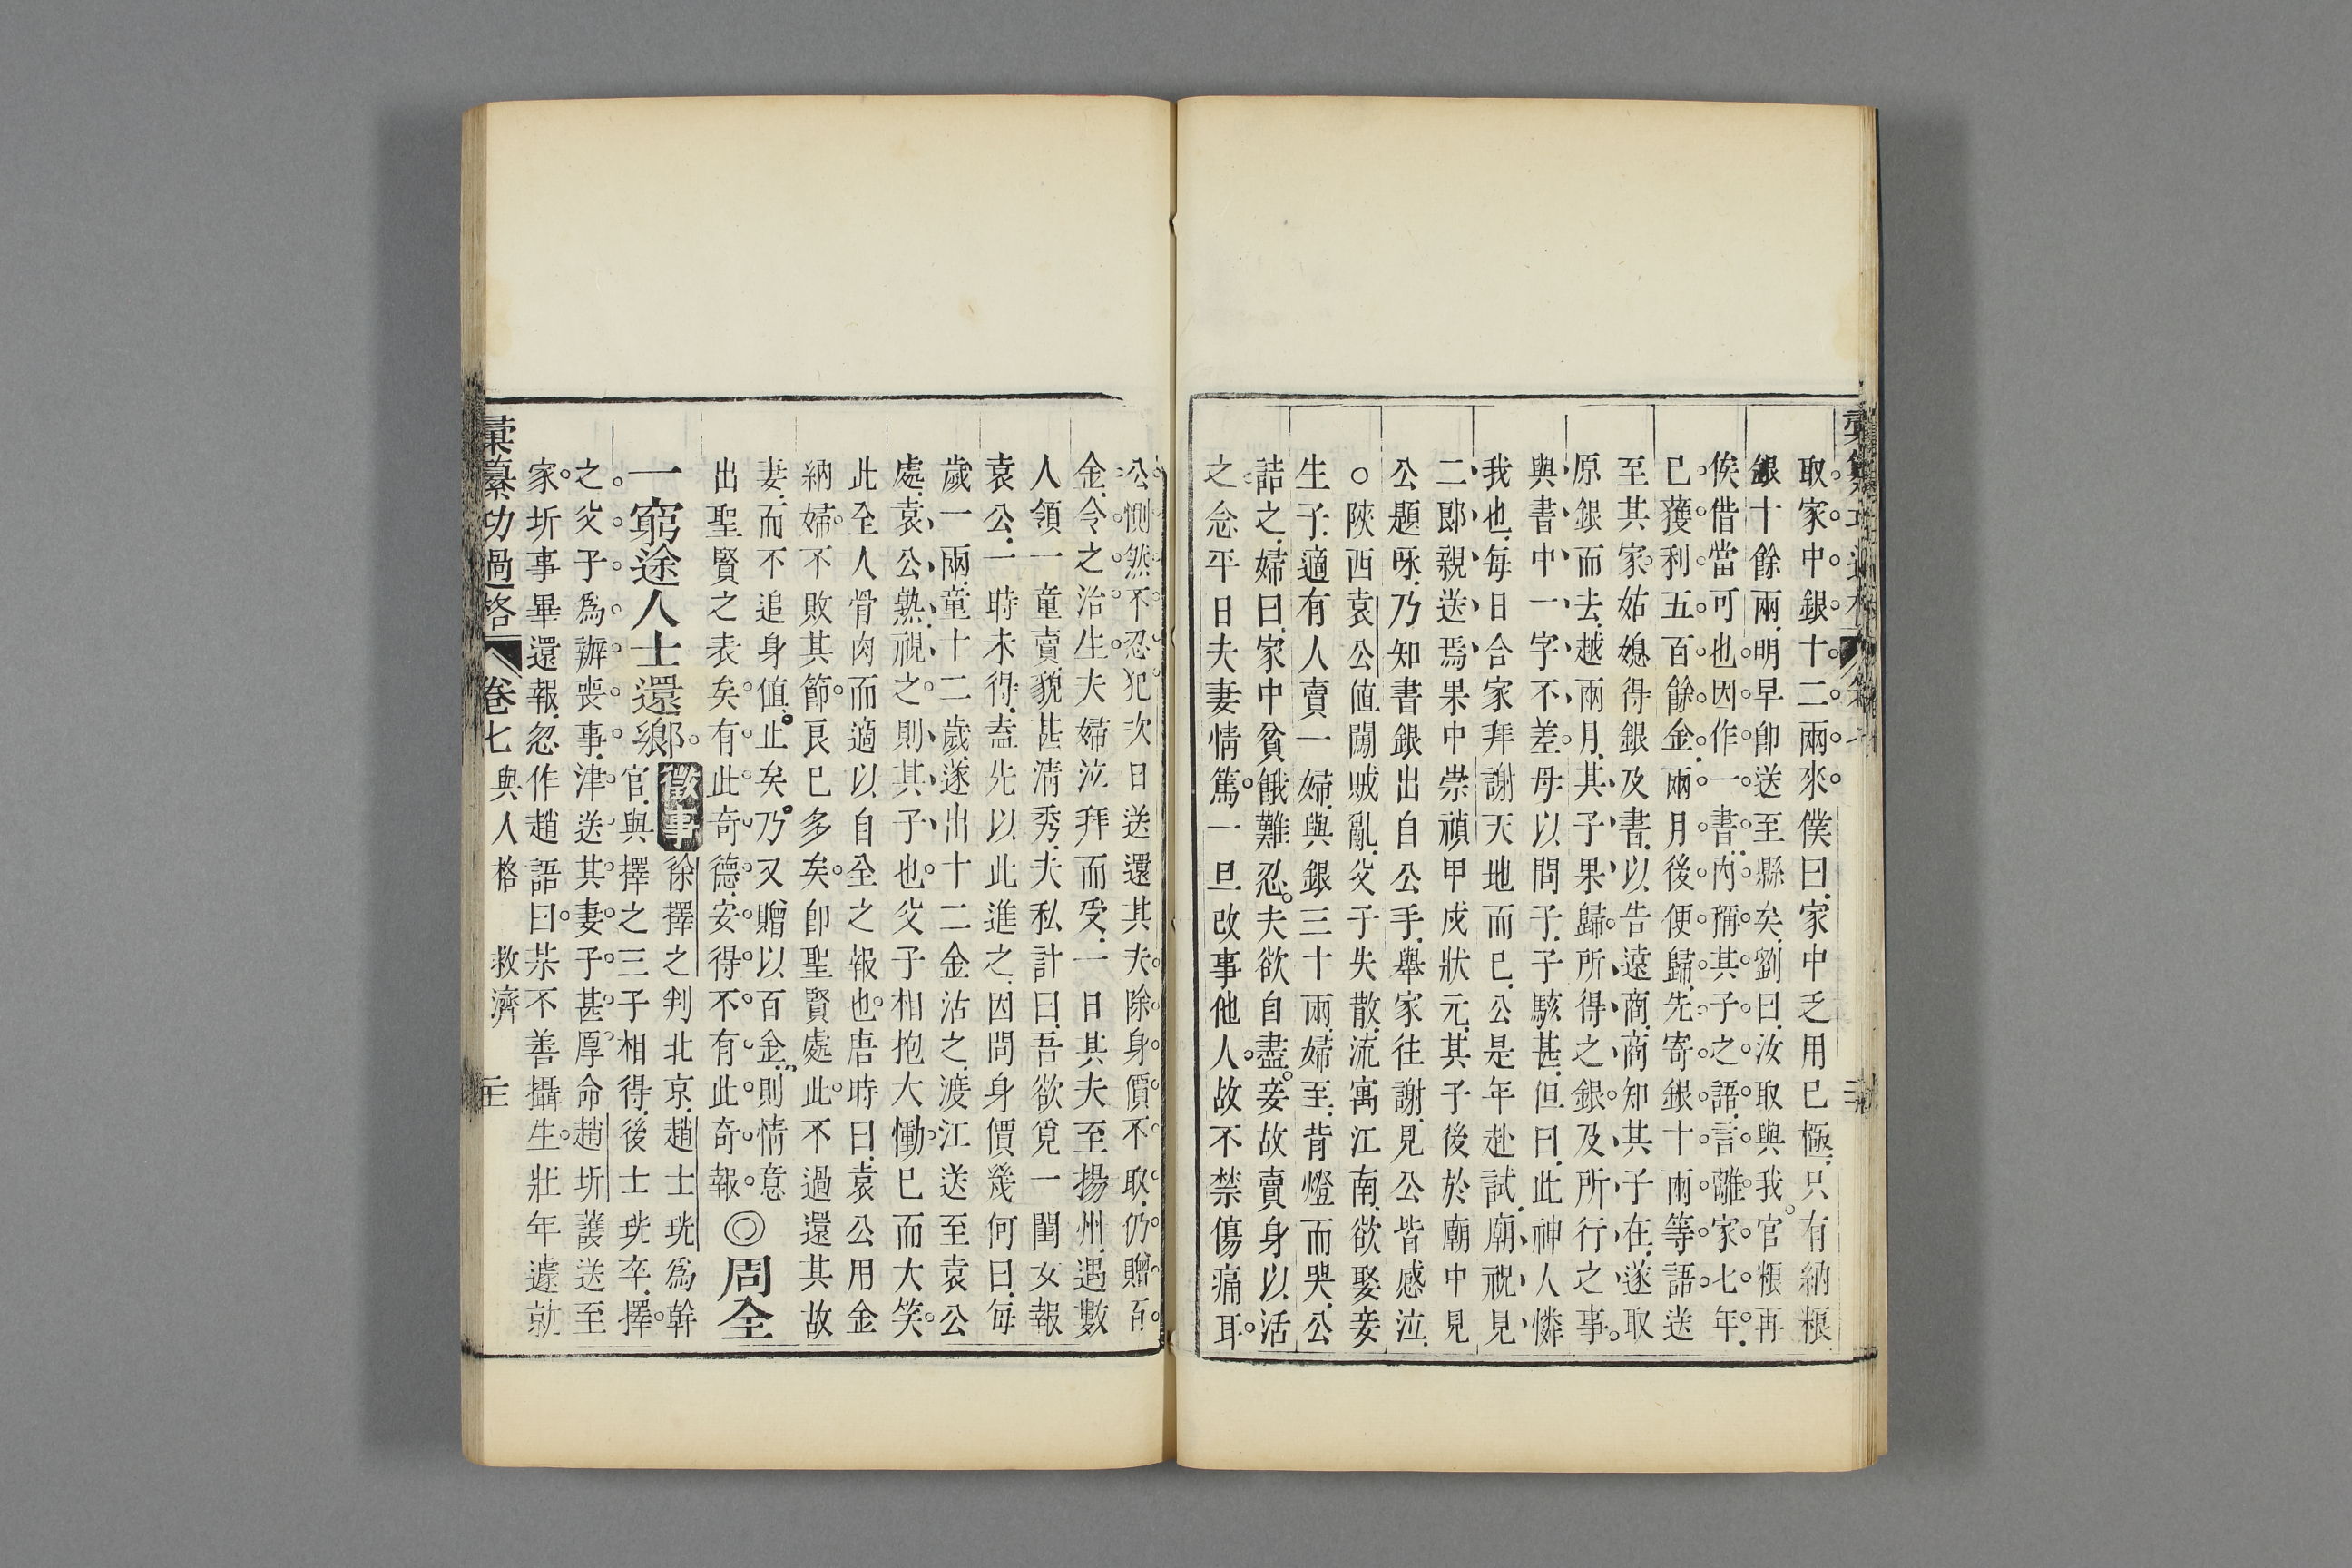 取家中銀十二兩來僕曰家中乏用已極只有納糧
銀十餘兩明早卽送至縣矣劉曰汝取與我官糧再
俟借當可也因作一書內稱其子之語言離家七年
已獲利五百餘金兩月後便歸先寄銀十兩等語送
至其家姑媳得銀及書以告遠商商知其子在遂取
原銀而去越兩月其子果歸所得之銀及所行之事
與書中一字不差母以問子子駭甚但曰此神人憐
我也每日合家拜謝天地而已公是年赴試廟祝見
二郎親送焉果中崇禎甲戌狀元其子後於廟中見
公題咏乃知書銀出自公手舉家往謝見公皆感泣
○陝西袁公値闖賊亂父子失散流寓江南欲娶妾
生子適有人賣一婦與銀三十兩婦至背燈而哭公
詰之婦曰家中貧餓難忍夫欲自盡妾故賣身以活
之念平日夫妻情篤一旦改事他人故不禁傷痛耳
公惻然不忍犯次日送還其夫除身價不取仍贈百
金令之治生夫婦泣拜而受一日其夫至揚州遇數
人領一童賣貌甚清秀夫私計曰吾欲覓一閨女報
袁公一時未得盍先以此進之因問身價幾何曰每
歲一兩童十二歲遂出十二金沽之渡江送至袁公
處袁公熟視之則其子也父子相抱大慟已而大笑
此全人骨肉而適以自全之報也唐時曰袁公用金
納婦不敗其節良已多矣卽聖賢處此不過還其故
妻而不追身値止矣乃又贈以百金則情意◎周全
出聖賢之表矣有此奇德安得不有此奇報
一窮途人士還鄉
徵事徐擇之判北京趙士珖爲幹
官與擇之三子相得後士珖卒擇
之父子爲辦喪事津送其妻子甚厚命趙圻護送至
家圻事畢還報忽作趙語曰某不善攝生壯年遽就
彙纂功過格 卷七 與人格 救濟